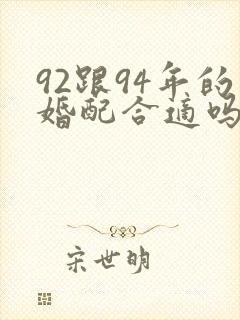 92跟94年的
婚配合适吗
宋世明